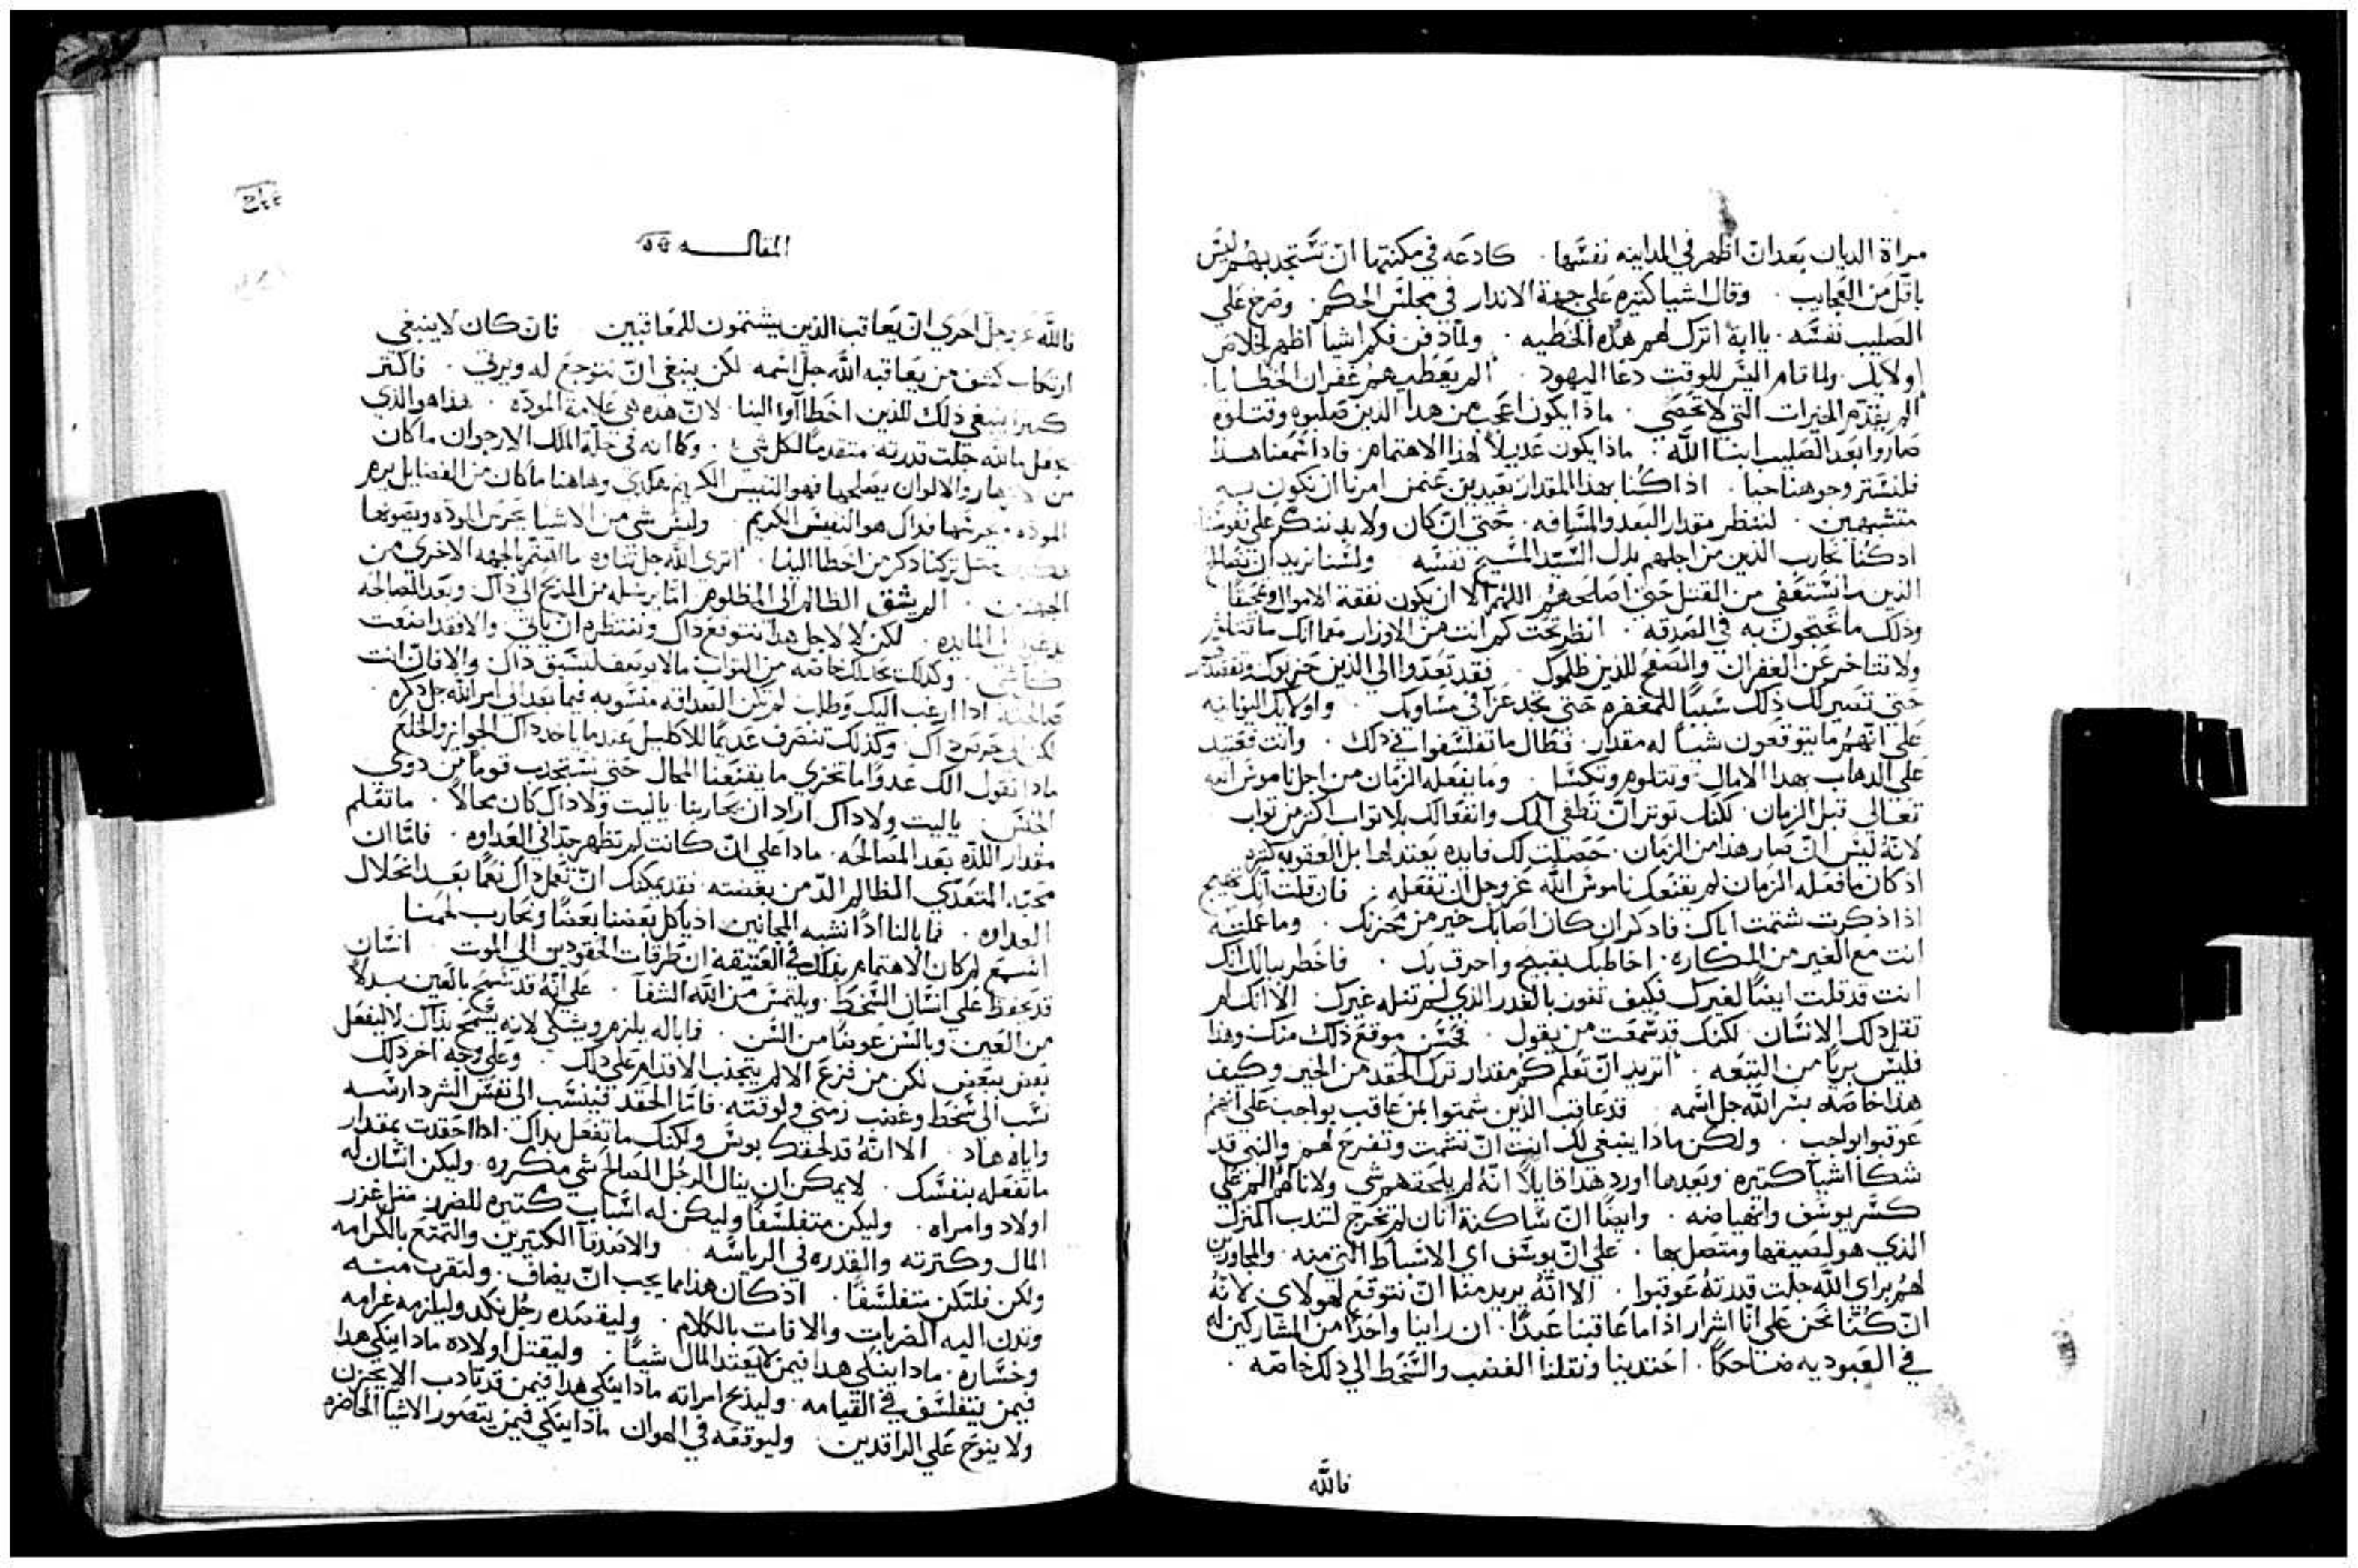 مراة الديان بعدان اظهر في المداينه نفسها . كادعه في مكنتها ان تستجد بهم ليس
باقل من العجايب . وقال اشيا كتيره علي جهة الاندار في مجلس الحكم . وصرخ علي
الصليب نفسه . يا ابة اترك لهم هذه الخطيه . ولما دفن فكم اشيا اظهر لخلاص
اوليك . ولما قام اليس للوقت دعا اليهود . الم يعطيهم غفران الخطايا .
الم يقدم الخيرات التي لا تحصي . ماذا يكون اعجب من هدا الدين صلبوه وقتلوه
صاروا بعد الصليب ابنا الله . ماذا يكون عديلا لهذا الاهتمام . فاذا سمعنا هدا
فلنستر وجوهنا حيا . اذا كنا بهذا المقدار بعيدين عمن امرنا ان نكون به
متشبهين . لننظر مقدار البعد والمسافه . حتي ان كان ولا بد نندكر علي نفوسنا
ادكنا نحارب الذين من اجلهم بدل السيد المسيح نفسه . ولسنا نريد ان نصالح
الذين ما استعفي من القتل حتي اصلحهم اللهم الا ان يكون نفقة الاموال
وذلك ما تحتجون به في الصدقه . انظر تحت كم انت من الاوزار
ولا تتاخر عن الغفران والصفح للذين ظلموك . فقد تعدوا الي الذين
حتي تصير لك ذلك سببا للمغفره حتي تجد عزا في مساويك .
علي انهم ما يتوقعون شيا له مقدار . فطال ما تفلسفوا في ذلك . وانت فعتيد
علي الدهاب بهدا الامال وتتلوم وتكسل . وما يفعله الزمان من اجل ناموس الله
تعالي قبل الزمان . لكنك توتر ان تطفي المك وانفعالك بلا تواب اكتر من تواب
لانه ليس ان صار هذا من الزمان . حصلت لك فايده يعتد لها بل العقوبه كتيره
اذ كان ما فعله الزمان لم يقنعك ناموس الله عز وجل ان تفعله . فان قلت انك تهيج
اذا ذكرت شتمت اياك فادكر ان كان اصابك خير من محزنك . وما عملته
انت مع الغير من المكاره . اخاطبك بقبيح واحرق بك . فاخطر ببالك انك
انت قد قلت ايضا لغيرك فكيف تفوز بالغدر الذي لم تنله غيرك الا انك لم
تقل دلك الانسان . لكنك قد سمعت من يقول . فحسن موقع ذلك منك وهذا
فليس بريا من التبعه . اتريد ان تعلم كم مقدار ترك الحقد من الخير وكيف
هذا خاصه يسر الله جل اسمه . قد عاقب الذين شمتوا بمن عاقب بواجب علي انهم
عوقبوا بواجب . ولكن ماذا ينبغي لك انت ان تشمت وتفرح لهم والنبي قد
شكا اشيا كتيره وبعدها اورد هذا قايلا انه لم يلحقهم شي ولا نالهم الم علي
كسر يوسف وانهياضه . وايضا ان ساكنة انان لم تخرج لتندب المنزل
الذي هو لصيقها ومتصل بها . علي ان يوسف اي الاسباط التي منه . والمجاورين
لهم براي الله جلت قدرته عوقبوا . الا انه يريد منا ان نتوقع لهولاي لانه
ان كنا نحن علي انا اشرار اذا ما عاقبنا عبدا . ان راينا واحدا من المشاركين له
في العبوديه ضاحكا . احتدينا ونقلنا الغضب والسخط الي ذلك خاصه .
فالله
المقاله
فالله عز وجل احري ان يعاقب الذين يشتمون للمعاقبين . فان كان لا ينبغي
من يعاقبه الله جل اسمه . لكن ينبغي ان نتوجع له ونرتي . فاكتر
كتيرا ينبغي ذلك للذين اخطاوا الينا . لان هده هي علامة الموده . هذا هو الذي
جعل ما لله جلت قدرته متقدما لكل شي . وكما انه في حلة الملك الارجوان ما كان
من والالوان يعملها فهو النفيس الكريم هكدي وهاهنا ما كان من الفضايل يرم
الموده فداك هو النفيس الكريم . وليس شي من الاشيا يحرس الموده ويصونها
مثل تركنا دكر من اخطا الينا . اتري الله جل تناوه ما اهتم بالجهه الاخري من
الجهتين . الم يشق الظالم الي المظلوم اما يرسله من المدبح الي داك وبعد المصالحه
الي المايده . لكن لا لاجل هدا نتوقع داك وننتظره ان ياتي
وكذلك من التواب ما لا يوصف لتسبق داك والا فان انت
صالحته ادا ارغب اليك وطلب لم تكن الصداقه منسوبه فيما بعد الي امر الله جل ذكره
داك وكذلك تنصرف عديما للاكليل عندما ياخد داك الجوايز والخلع
ماذا تقول الك عدوا اما تخزي ما يقنعنا المحال حتي نستجدب قوما من دوي
الجنس . يا ليت ولا داك اراد ان يحاربنا . يا ليت ولا داك كان محالا . ما تعلم
مقدار اللذه بعد المصالحه . ماذا علي ان كانت لم تظهر جدا في العداوه . فاما ان
محبة المتعدي الظالم الد من بغضته . فقد يمكنك ان تعمل داك نعما بعد انحلال
العداوه . فما بالنا ادا نشبه المجانين اذ ياكل بعضنا بعضا ونحارب لحمنا
اسمع لم كان الاهتمام بذلك في العتيقه ان طرقات الحقودين الي الموت . انسان
قد يحفظ علي انسان السخط ويلتمس من الله الشفا . علي انه قد سمح بالعين بدلا
من العين وبالسن عوضا من السن . فما باله يلزم ويشكي لانه يسمح بذاك لا ليفعل
بعض ببعض لكن من فزع الالم يتجنب الاقدام علي ذلك . وعلي وجه اخر ذلك
نسب الي سخط وغضب زمني ولوقته . فاما الحقد فينسب الي نفس الشر دارسه
واياه هاد . الا انه قد لحقك بوس ولكنك ما تفعل بداك . ادا احقدت بمقدار
ما تفعله بنفسك . لا يمكن ان ينال الرجل الصالح شي مكروه . وليكن انسان له
اولاد وامراه . وليكن متفلسفا وليكن له اسباب كتيره للضرر متل غزر
المال وكترته والقدره في الرياسه . والاصدقا الكتيرين والتمتع بالكرامه
ولكن فلتكن متفلسفا . اذ كان هذا مما يجب ان يضاف . ولتقرن منه
وتدن اليه الضربات والافات بالكلام . وليقصده رجل نكد وليلزمه غرامه
وخساره . ماذا ينكي هدا فيمن لا يعتد المال شيا . وليقتل اولاده ماذا ينكي هدا
فيمن يتفلسف في القيامه . وليذبح امراته ماذا ينكي هدا فيمن قد تادب الا يحزن
ولا ينوح علي الراقدين . وليوقعه في الهوان ماذا ينكي فيمن يتصور الاشيا الحاضره